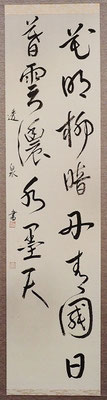 花明柳暗丹青國日
暮雲濃水墨天
逸泉書